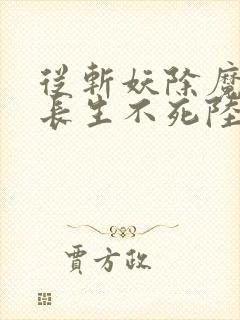 從斬妖除魔
長生不死陸
賈方政